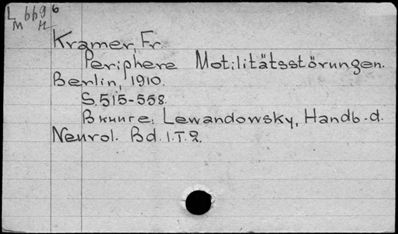 L 669 6
M 12
Kramer, Fr.
Periphere Motilitätsstörungen.
Berlin, 1910.
S. 515-558.
В книге: Lewandowsky, Handb. d.
Neurol. Bd. I. T. 2.